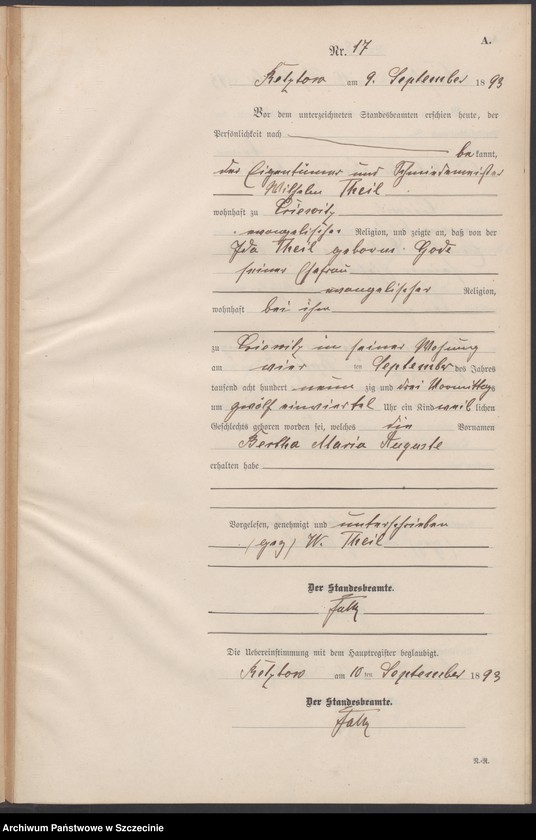 A.
Nr. 17
Retzlow am 9. September 1893
Vor dem unterzeichneten Standesbeamten erschien heute, der
Persönlichkeit nach
bekannt,
der Eigentümer und Schmiedemeister
Wilhelm Theil
wohnhaft zu Criewitz
evangelischer Religion, und zeigte an, daß von der
Ida Theil geborne Gode
seiner Ehefrau
evangelischer Religion,
wohnhaft bei ihm
zu Criewitz in seiner Wohnung
am vier ten September des Jahres
tausend acht hundert neun zig und drei Vormittags
um zwölf einviertel Uhr ein Kind weib lichen
Geschlechts geboren worden sei, welches die Vornamen
Bertha Maria Auguste
erhalten habe
Vorgelesen, genehmigt und unterschrieben
(gez) W. Theil
Der Standesbeamte.
Die Uebereinstimmung mit dem Hauptregister beglaubigt.
Retzlow am 10 ten September 1893
Der Standesbeamte.
N.-R.
Archiwum Państwowe w Szczecinie